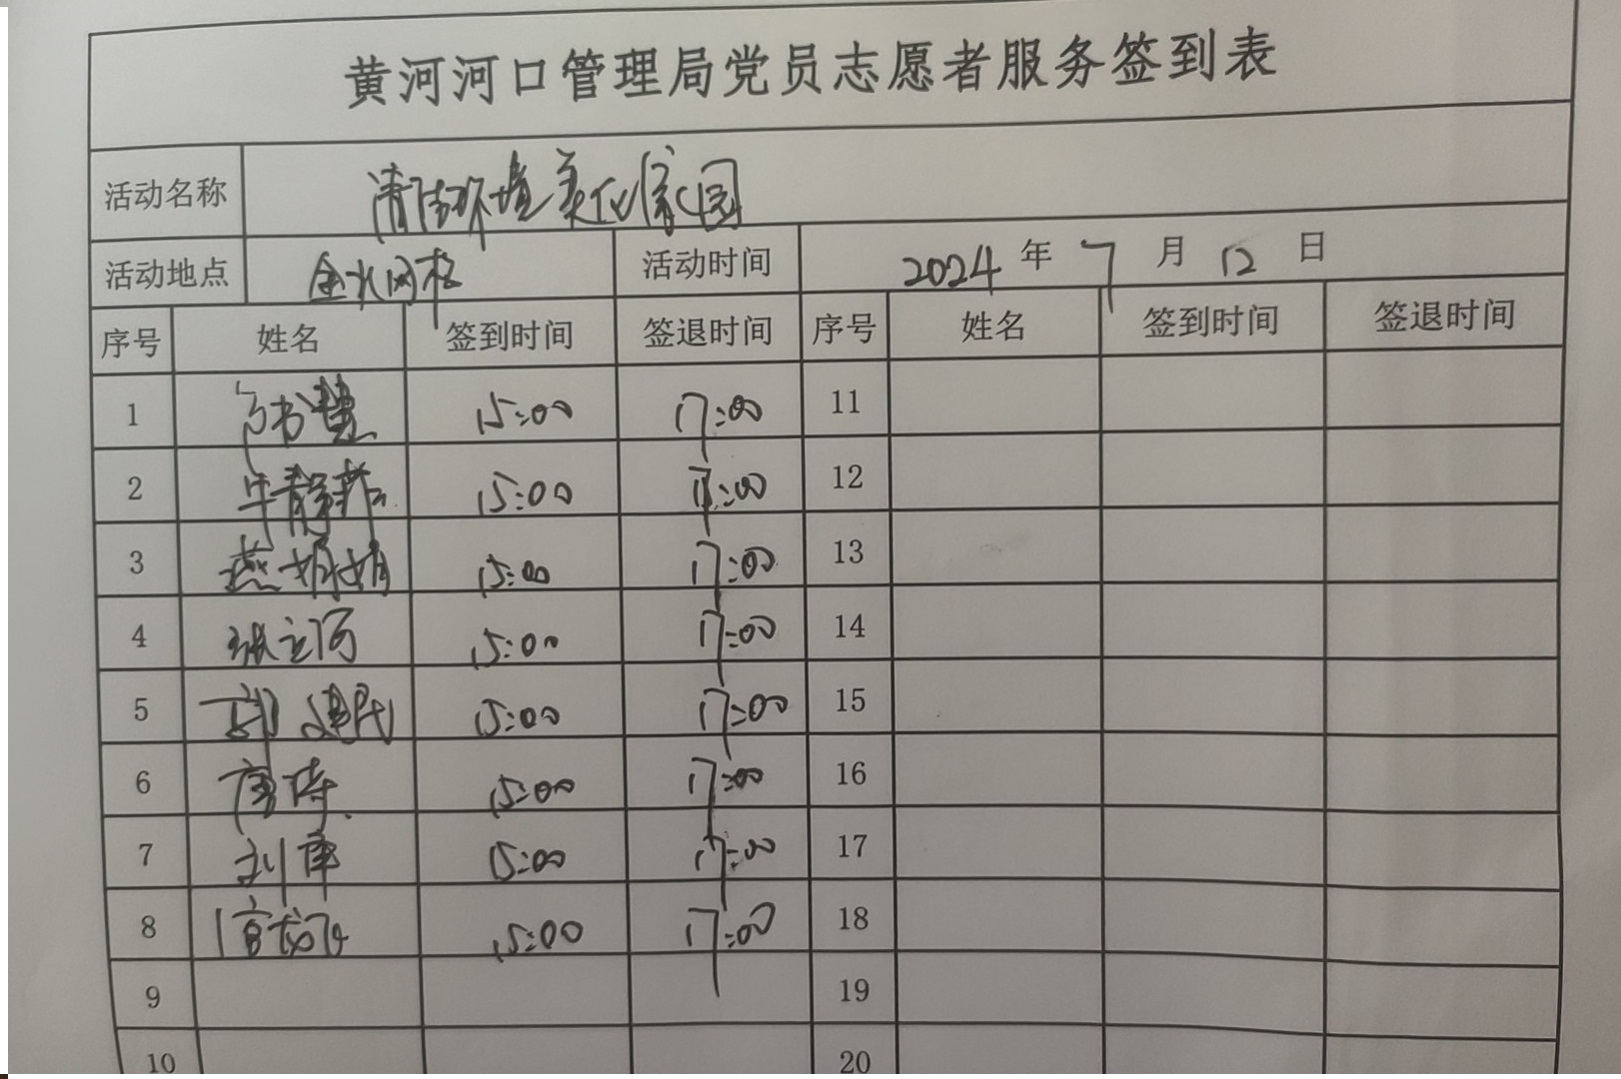 黄河河口管理局党员志愿者服务签到表
活动名称 清洁环境 美化家园
活动地点 金水网格 活动时间 2024 年 7 月 12 日
序号 姓名 签到时间 签退时间 序号 姓名 签到时间 签退时间
1 15:00 17:00 11
2 牛静 15:00 17:00 12
3 燕娟娟 15:00 17:00 13
4 张立河 15:00 17:00 14
5 郭建民 15:00 17:00 15
6 唐涛 15:00 17:00 16
7 刘军 15:00 17:00 17
8 15:00 17:00 18
9 19
10 20